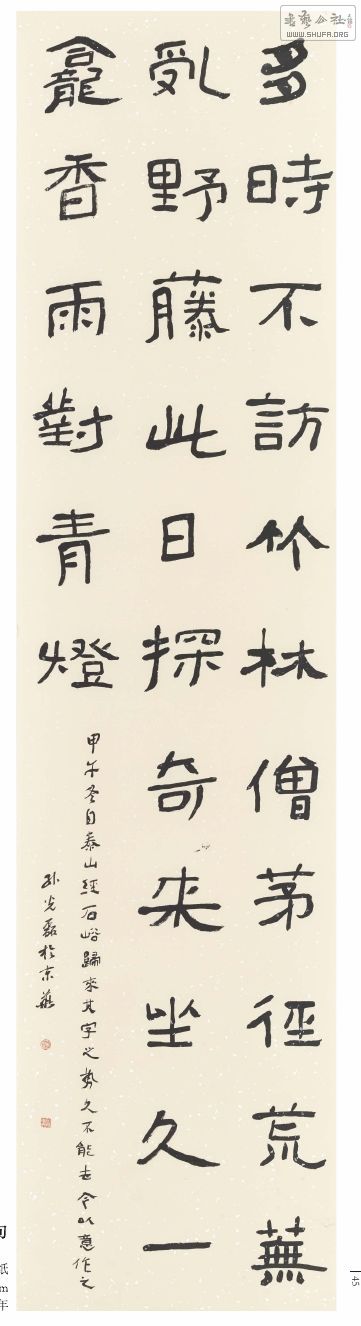 多時不訪竹林僧茅徑荒蕪
亂野藤此日探奇来坐久一
龕香雨對青燈
甲午冬自泰山經石峪歸來其字之勢久不能去今以意作之
孫光磊於京華
書藝公社
WWW.SHUFA.ORG
45
句
紙
m
年